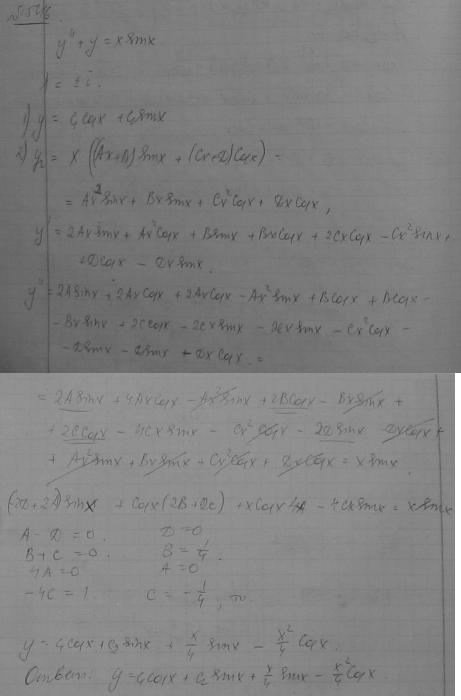 y'' + y = x sin x
λ = ± i.
1) y = C₁ cos x + C₂ sin x
2) y₂ = x ((Ax+B) sin x + (Cx+D) cos x) =
= Ax² sin x + Bx sin x + Cx² cos x + Dx cos x,
y' = 2Ax sin x + Ax² cos x + B sin x + Bx cos x + 2Cx cos x - Cx² sin x +
+ D cos x - Dx sin x.
y'' = 2A sin x + 2Ax cos x + 2Ax cos x - Ax² sin x + B cos x + B cos x -
- Bx sin x + 2C cos x - 2Cx sin x - 2Cx sin x - Cx² cos x -
- D sin x - D sin x - Dx cos x =
= 2A sin x + 4Ax cos x - Ax² sin x + 2B cos x - Bx sin x +
+ 2C cos x - 4Cx sin x - Cx² cos x - 2D sin x - Dx cos x +
+ Ax² sin x + Bx sin x + Cx² cos x + Dx cos x = x sin x
(-2D + 2A) sin x + cos x (2B + 2C) + x cos x 4A - 4Cx sin x = x sin x
A - D = 0. D = 0
B + C = 0. B = 1/4.
4A = 0 A = 0
-4C = 1. C = -1/4,
y = C₁ cos x + C₂ sin x + x/4 sin x - x²/4 cos x.
Ответ: y = C₁ cos x + C₂ sin x + x/4 sin x - x²/4 cos x.